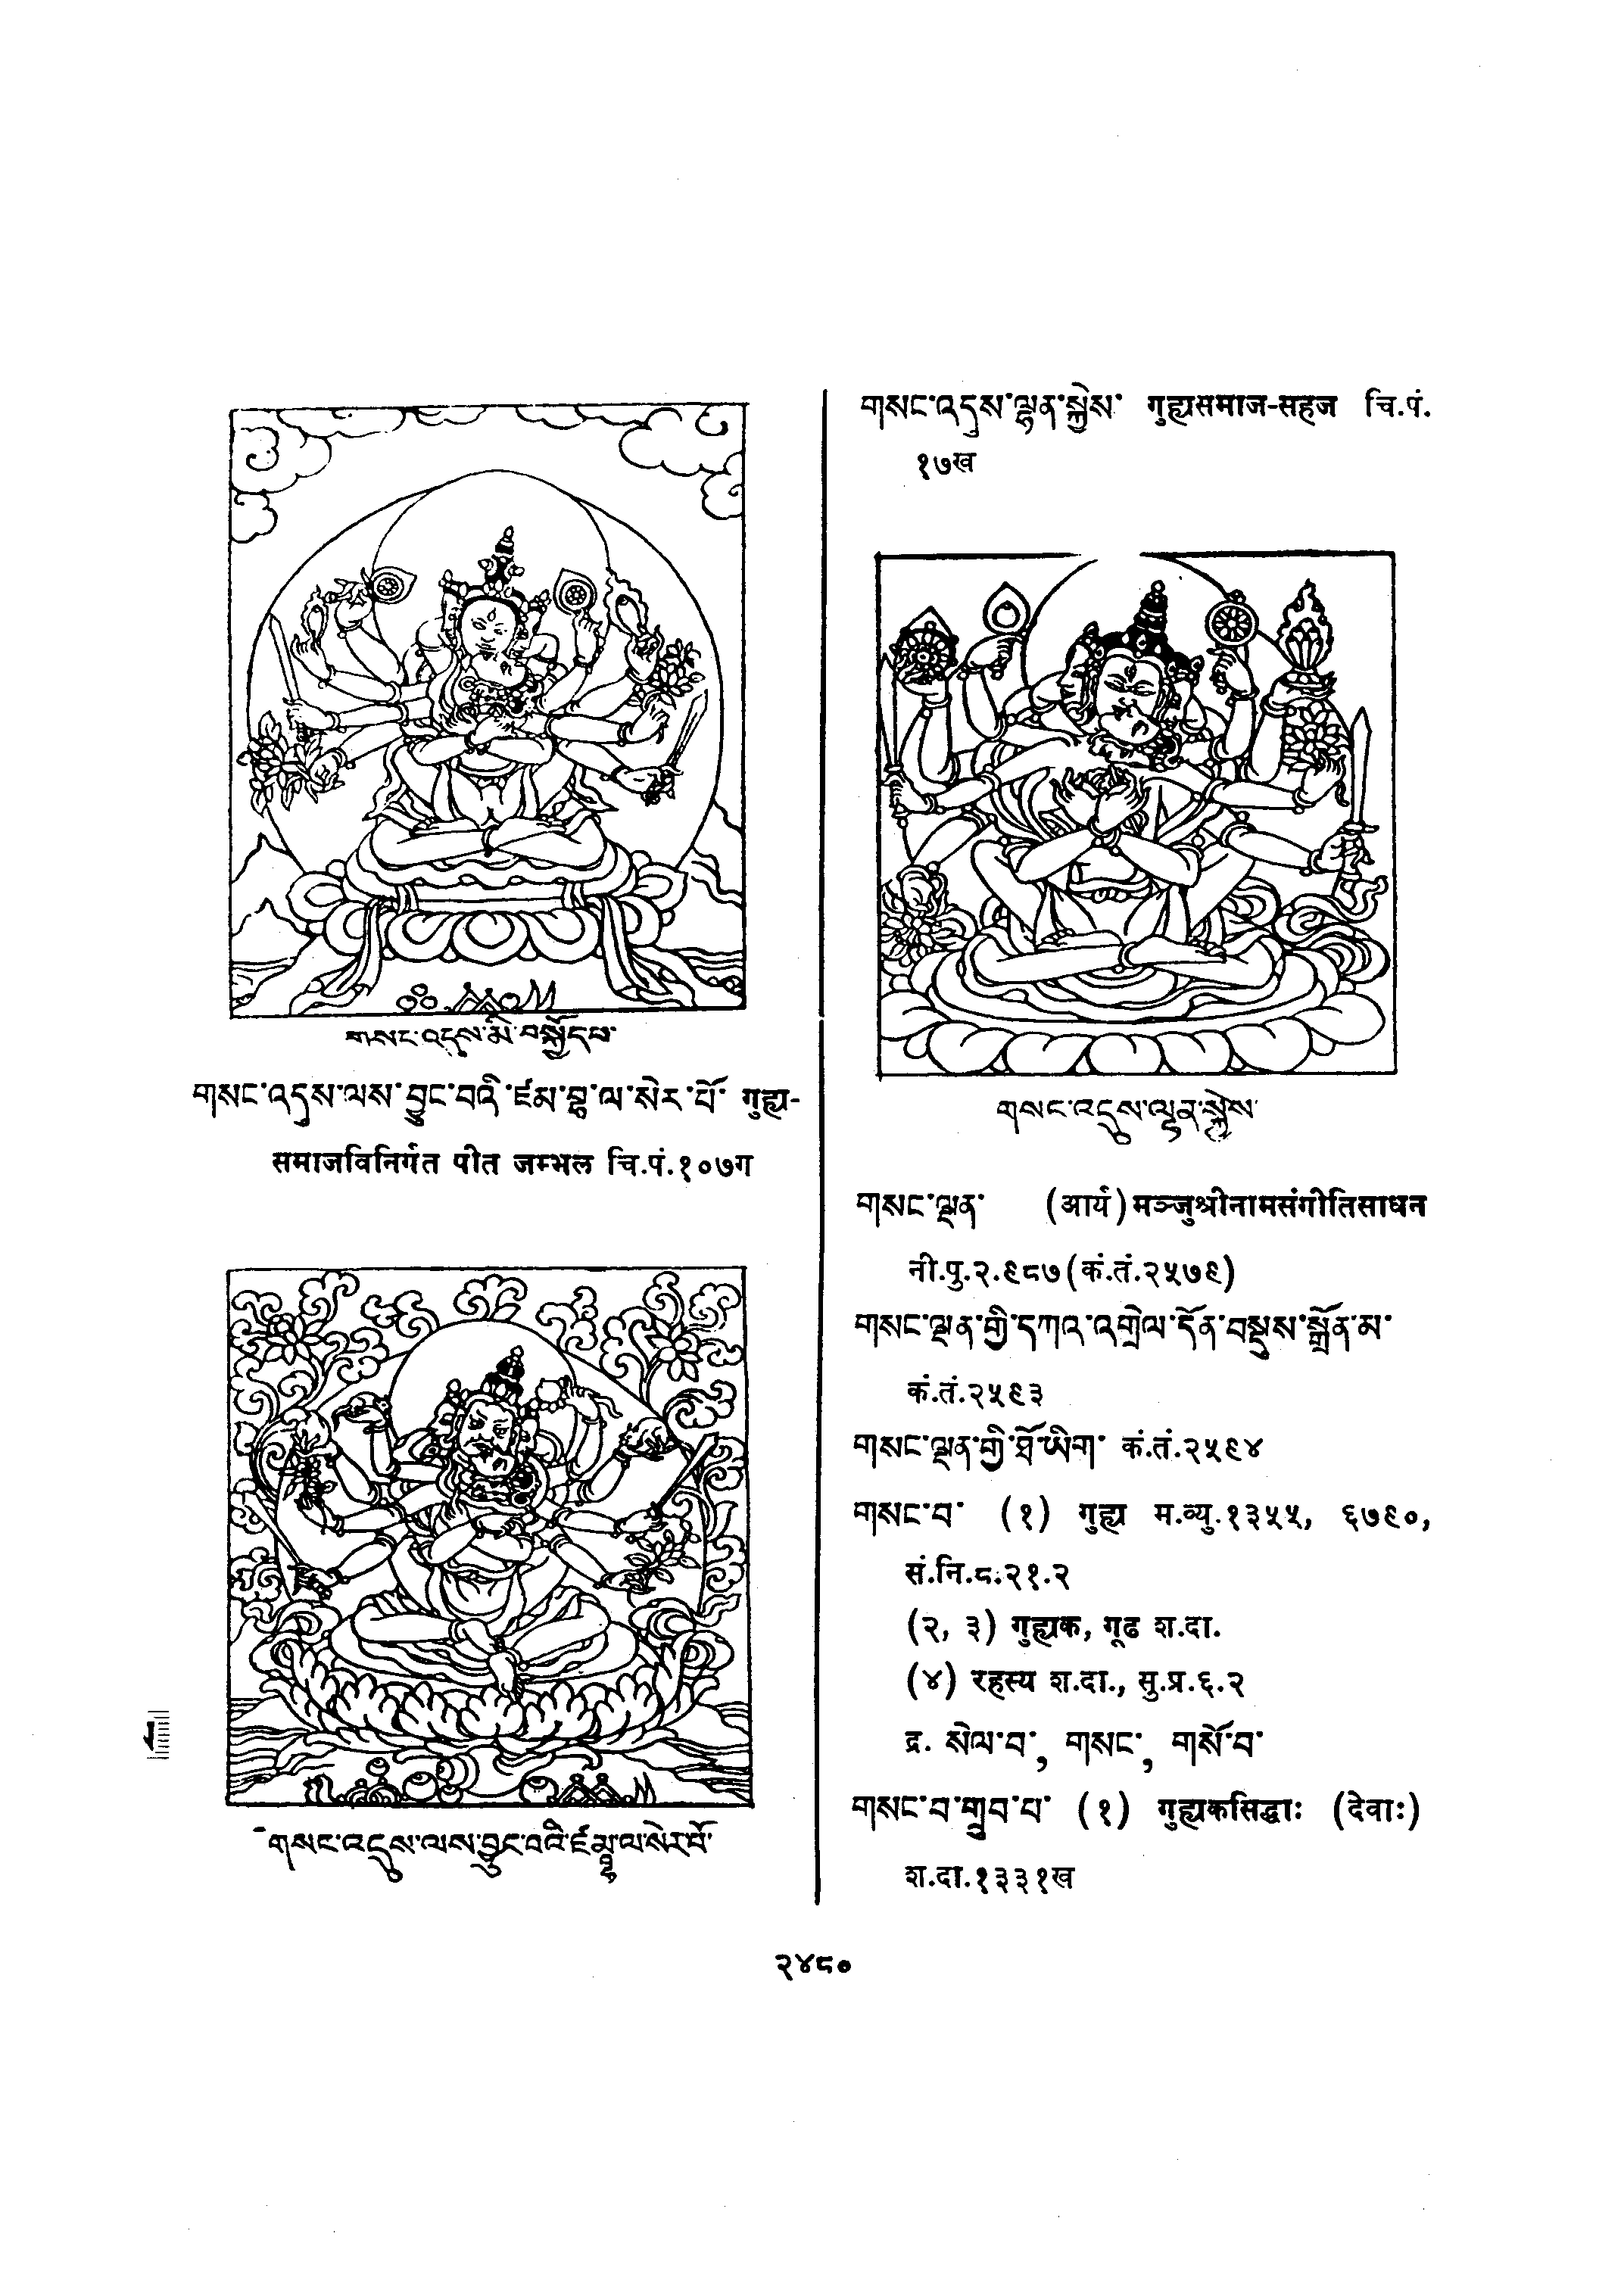 གསང་འདུས་མི་བསྐྱོད་པ་
གསང་འདུས་ལས་བྱུང་བའི་ཛམ་བྷ་ལ་སེར་པོ་ गुह्य-
समाजविनिर्गत पीत जम्भल चि.पं.१०७ग
གསང་འདུས་ལས་བྱུང་བའི་ཛམྦྷ་ལ་སེར་པོ་
གསང་འདུས་ལྷན་སྐྱེས་ गुह्यसमाज-सहज चि.पं.
१७ख
གསང་འདུས་ལྷན་སྐྱེས་
གསང་ལྡན་ (आर्य) मञ्जुश्रीनामसंगीतिसाधन
नी.पु.२.९८७(कं.तं.२५७९)
གསང་ལྡན་གྱི་དཀའ་འགྲེལ་དོན་བསྡུས་སྒྲོན་མ་
कं.तं.२५९३
གསང་ལྡན་གྱི་ཐོ་ཡིག་ कं.तं.२५९४
གསང་བ་ (१) गुह्य म.व्यु.१३५५, ६७९०,
सं.नि.८.२१.२
(२, ३) गुह्यक, गूढ श.दा.
(४) रहस्य श.दा., सु.प्र.६.२
द्र. སེལ་བ་, གསང་, གསོ་བ་
གསང་བ་གྲུབ་པ་ (१) गुह्यकसिद्धाः (देवाः)
श.दा.१३३१ख
२४८०